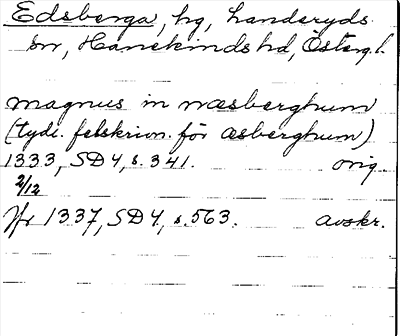 Edsberga, hg, Landeryds
sn, Hanekinds hd, Östergl.
magnus in næsberghum
(tydl. felskrivn. för æsberghum)
1333, SD4, s. 341. orig.
2/12
Jfr 1337, SD4, s. 563. avskr.